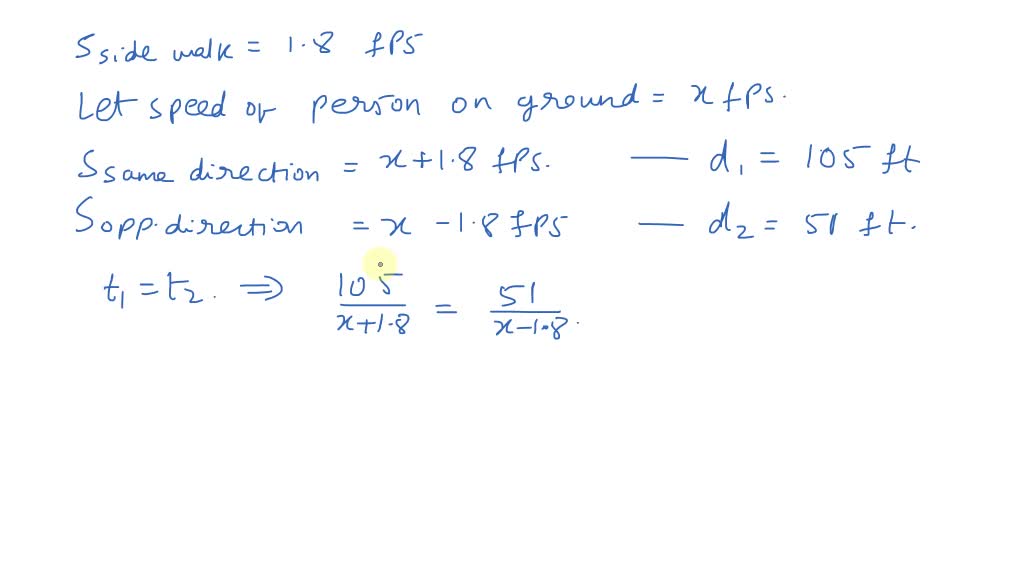 S side walk = 1.8 fps
Let speed of person on ground = x fps.
S same direction = x + 1.8 fps. — d₁ = 105 ft
S opp. direction = x - 1.8 fps — d₂ = 51 ft.
t₁ = t₂. ⇒ 105/(x+1.8) = 51/(x-1.8).